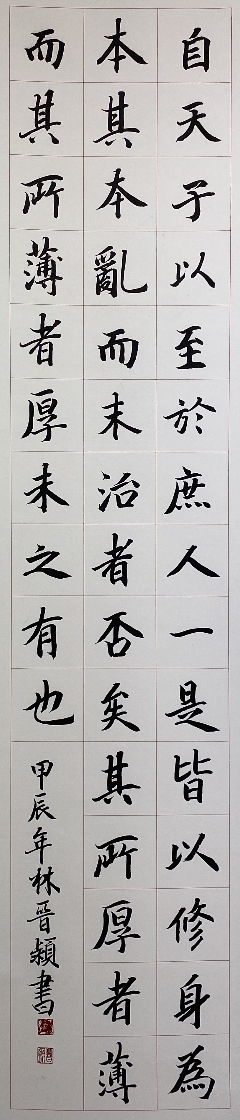 自天子以至於庶人一是皆以修身為
本其本亂而末治者否矣其所厚者薄
而其所薄者厚未之有也
甲辰年林晉穎書